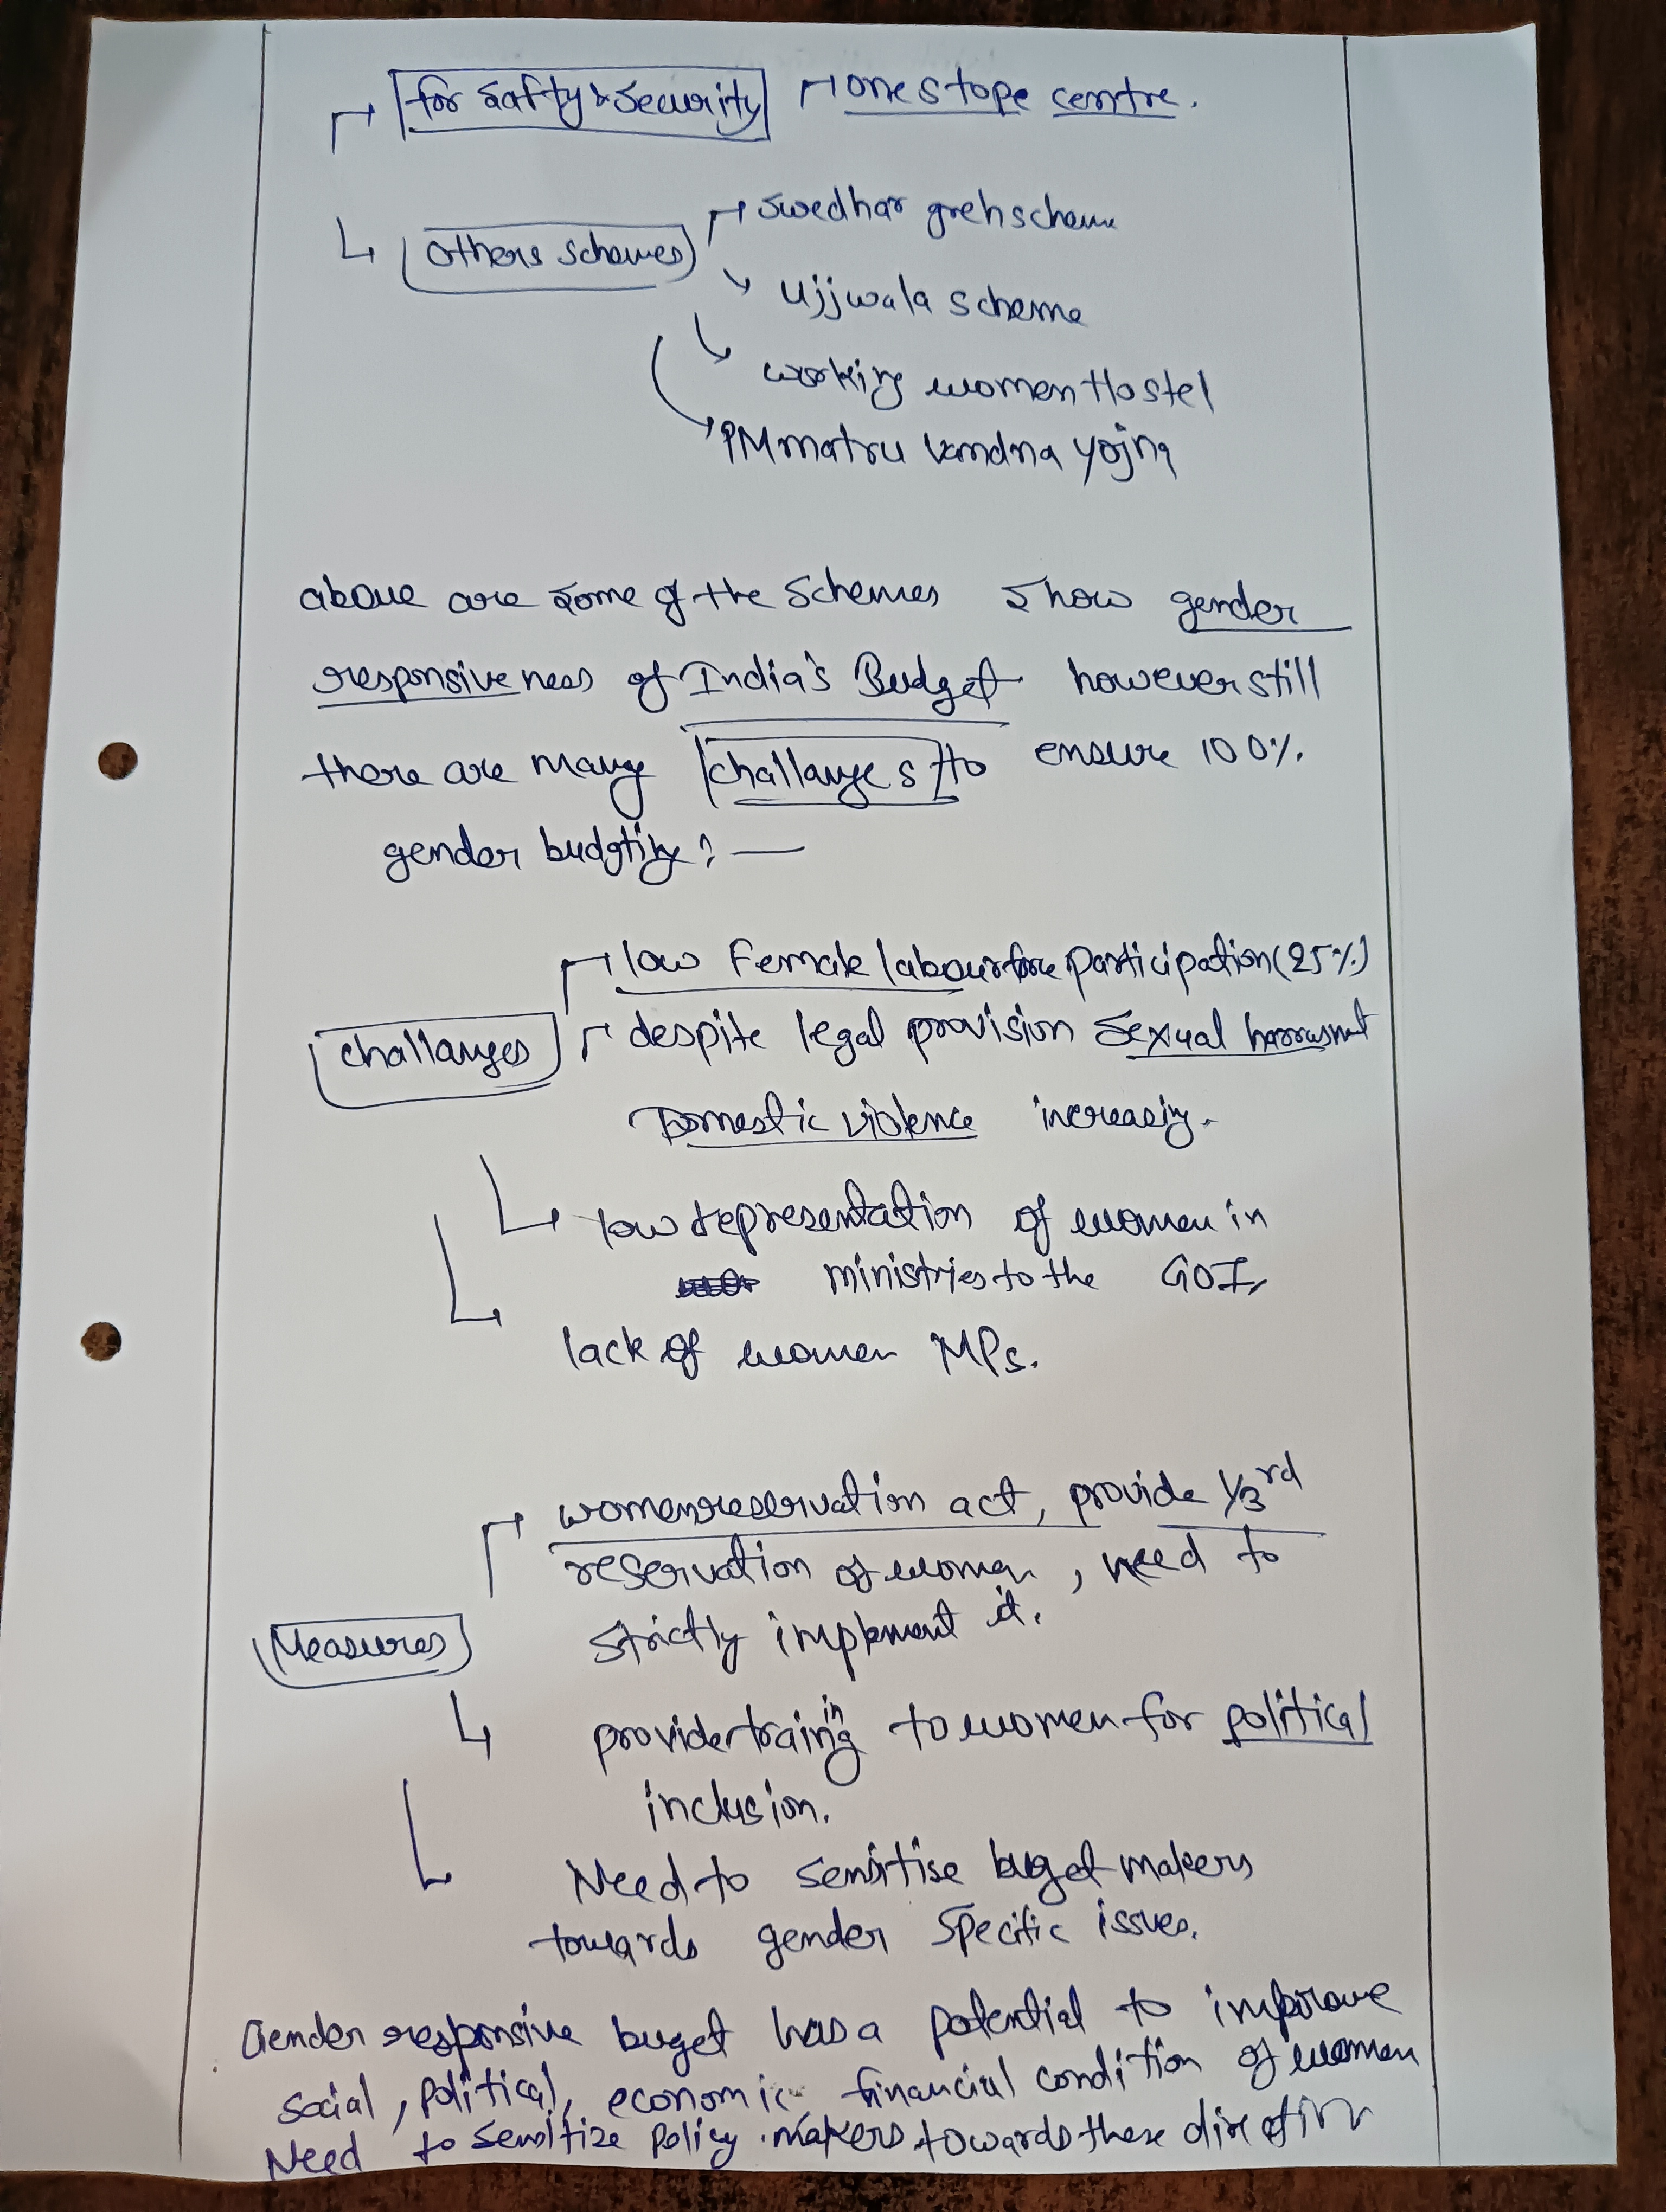 for Safty & Security → one stope centre.
Others schemes → Swedhar greh scheme
Ujjwala scheme
working women Hostel
PM matru Vandna Yojna
above are some of the Schemes show gender
responsiveness of India's Budget however still
there are many challanges to ensure 100%
gender budgting : —
low Female labour force participation (25%)
challanges
despite legal provision Sexual harrasmnt
Domestic violence increasing.
low representation of women in
ministries to the GOI,
lack of women MPs.
women reservation act, provide 1/3rd
reservation of women, need to
strictly implement it.
Measures
provide training to women for political
inclusion.
Need to sensitise buget makers
towards gender specific issues.
Gender responsive buget has a potential to improve
social, political, economic financial condition of women
Need to sensitize policy makers towards these direction